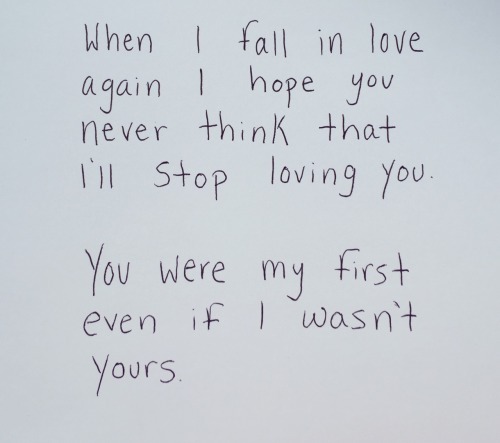 When I fall in love
again I hope you
never think that
I'll stop loving you.
You were my first
even if I wasn't
yours.